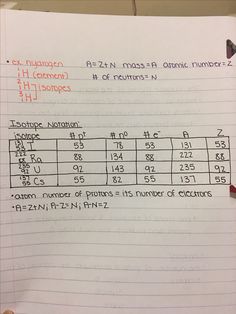 • ex. hydrogen A=Z+N mass=A atomic number=Z
¹₁H (element) # of neutrons=N
²₁H isotopes
³₁H
Isotope Notation:
isotope # p⁺ # n⁰ # e⁻ A Z
¹³¹₅₃I 53 78 53 131 53
²²²₈₈Ra 88 134 88 222 88
²³⁵₉₂U 92 143 92 235 92
¹³⁷₅₅Cs 55 82 55 137 55
• atom number of protons = its number of electrons
• A=Z+N; A-Z=N; A-N=Z